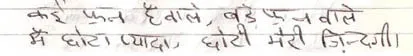 कई फन हैवाले, बड़े फन वाले
मैं छोटा प्यादा, छोटी मेरी ज़िन्दगी।